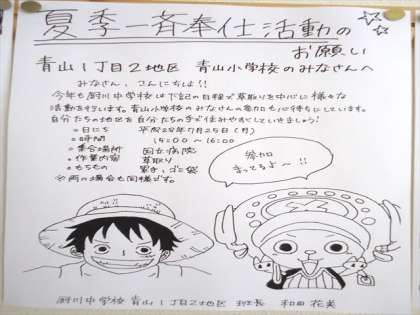 夏季一斉奉仕活動の
お願い
青山1丁目2地区 青山小学校のみなさんへ
みなさん、こんにちは!!
今年も厨川中学校は下記の日程で草取りを中心に様々な
活動を行います。青山小学校のみなさんの参加も心待ちにしています。
自分たちの地区を自分たちの手で住みやすくしていきましょう!
・日にち 平成28年7月25日(月)
・時間 15:00 〜 16:00
・集合場所 国立病院
・作業内容 草取り
・もちもの 軍手・ゴミ袋
※雨の場合も同様です。
参加
まってるよ〜!!
厨川中学校 青山1丁目2地区 班長 和田 花菜